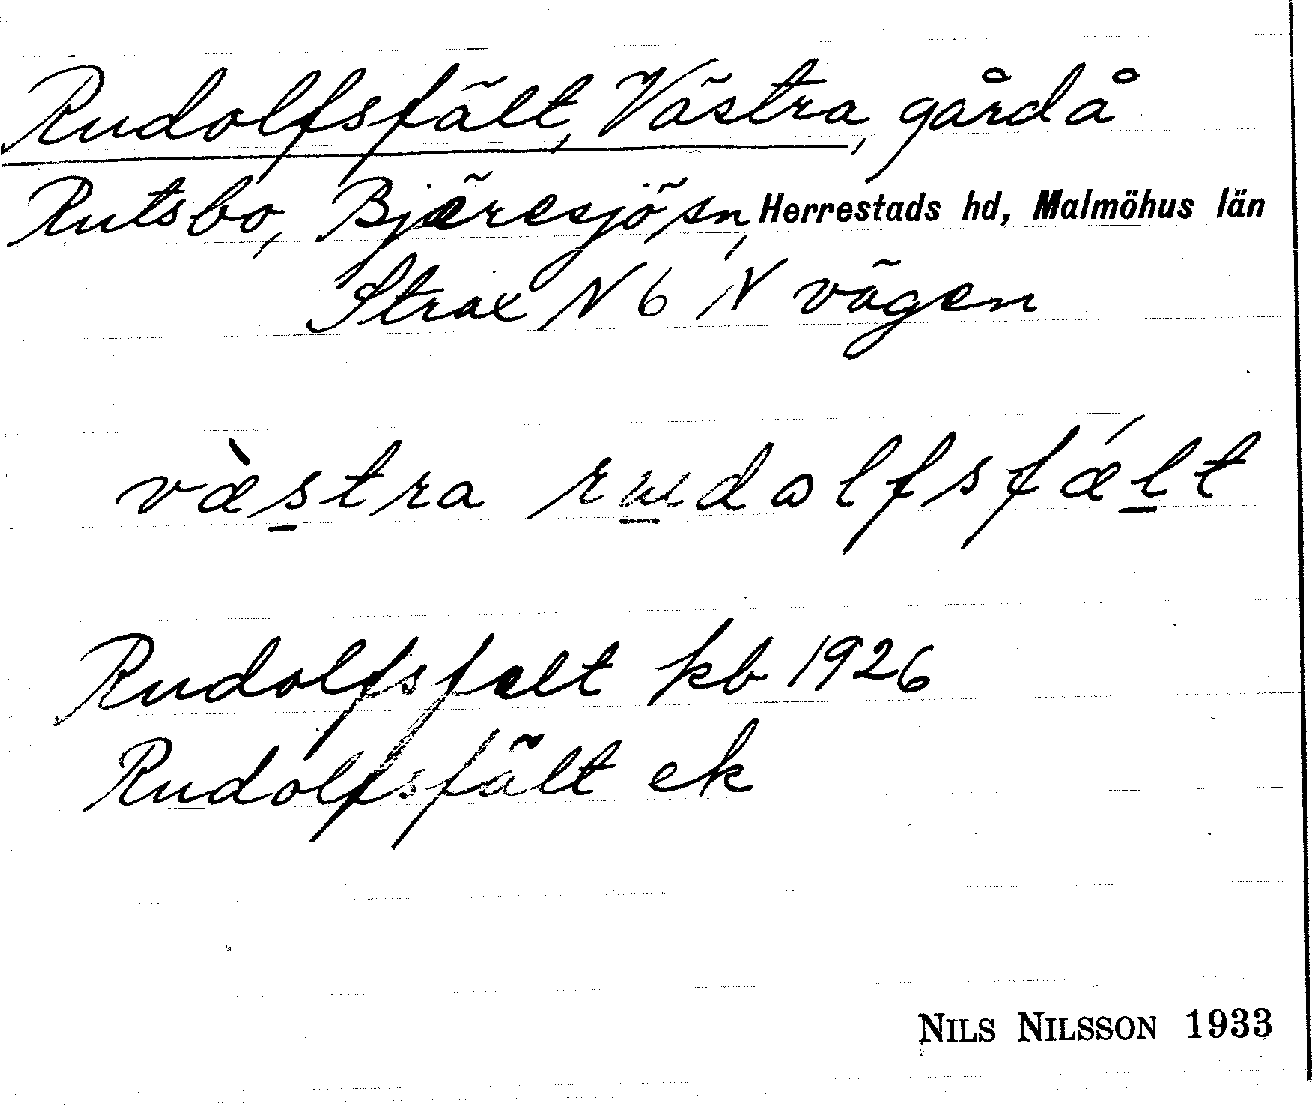 Rudolfsfält, Västra, gård å
Rutsbo, Bjäresjö sn, Herrestads hd, Malmöhus län
Strax N b N vägen
væ̀stra rudolfsfǽlt
Rudolfsfelt kb 1926
Rudolfsfält ek
NILS NILSSON 1933